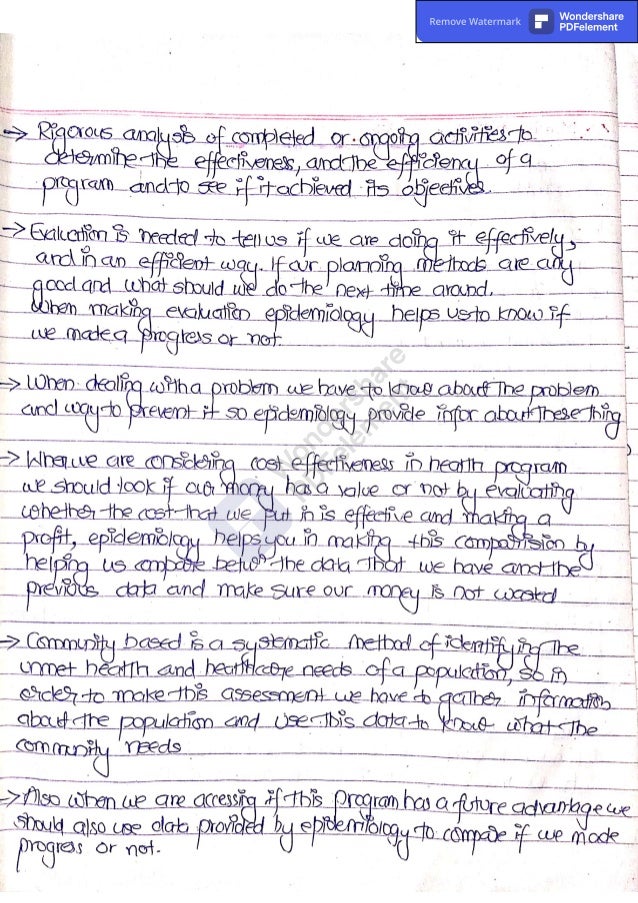 Remove Watermark
Wondershare
PDFelement
→ Rigorous analysis of completed or ongoing activities to
determine the effectiveness, and the efficiency of a
program and to see if it achieved its objectives.
→ Evaluation is needed to tell us if we are doing it effectively,
and in an efficient way. If our planning methods are any
good and what should we do the next time around.
When making evaluation epidemiology helps us to know if
we made a progress or not.
→ When dealing with a problem we have to know about the problem
and way to prevent it so epidemiology provide infor about these thing
→ When we are considering cost effectiveness in health program
we should look if our money has a value or not by evaluating
whether the cost that we put in is effective and making a
profit, epidemiology helps you in making this comparision by
helping us compare betwn the data that we have and the
previous data and make sure our money is not wasted
→ Community based is a systematic method of identifying the
unmet health and healthcare needs of a population, so in
order to make this assessment we have to gather information
about the population and use this data to know what the
community needs.
→ Also when we are accessing if this program has a future advantage we
should also use data provided by epidemiology to compare if we made
progress or not.
Wondershare
PDFelement